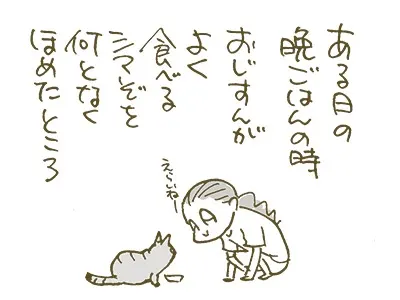 ある日の
晩ごはんの時
おじすんが
よく
食べる
シマぞを
何となく
ほめたところ
えらいねー